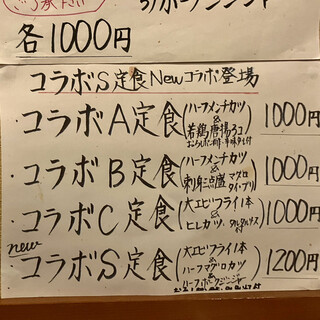 各1000円
コラボS定食Newコラボ登場
・コラボA定食(ハーフメンチカツ & 若鶏唐揚3コ) 1000円
・コラボB定食(ハーフメンチカツ & 刺身三点盛 マグロ タイ・ブリ) 1000円
・コラボC定食(大エビフライ1本 & ヒレカツ タルタルソース) 1000円
new
・コラボS定食(大エビフライ1本 & ハーフマグロカツ & ハーフポークジンジャー) 1200円